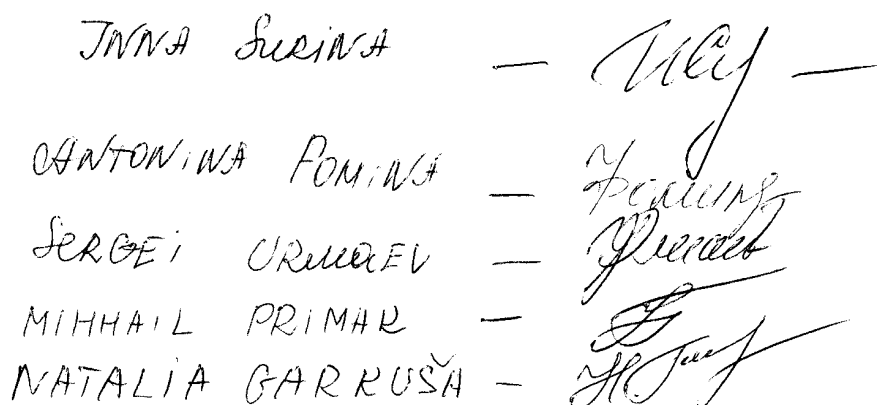 INNA SURINA —
ANTONINA FOMINA — Фомина
SERGEI URMAEV —
MIHHAIL PRIMAK —
NATALIA GARKUŠA —